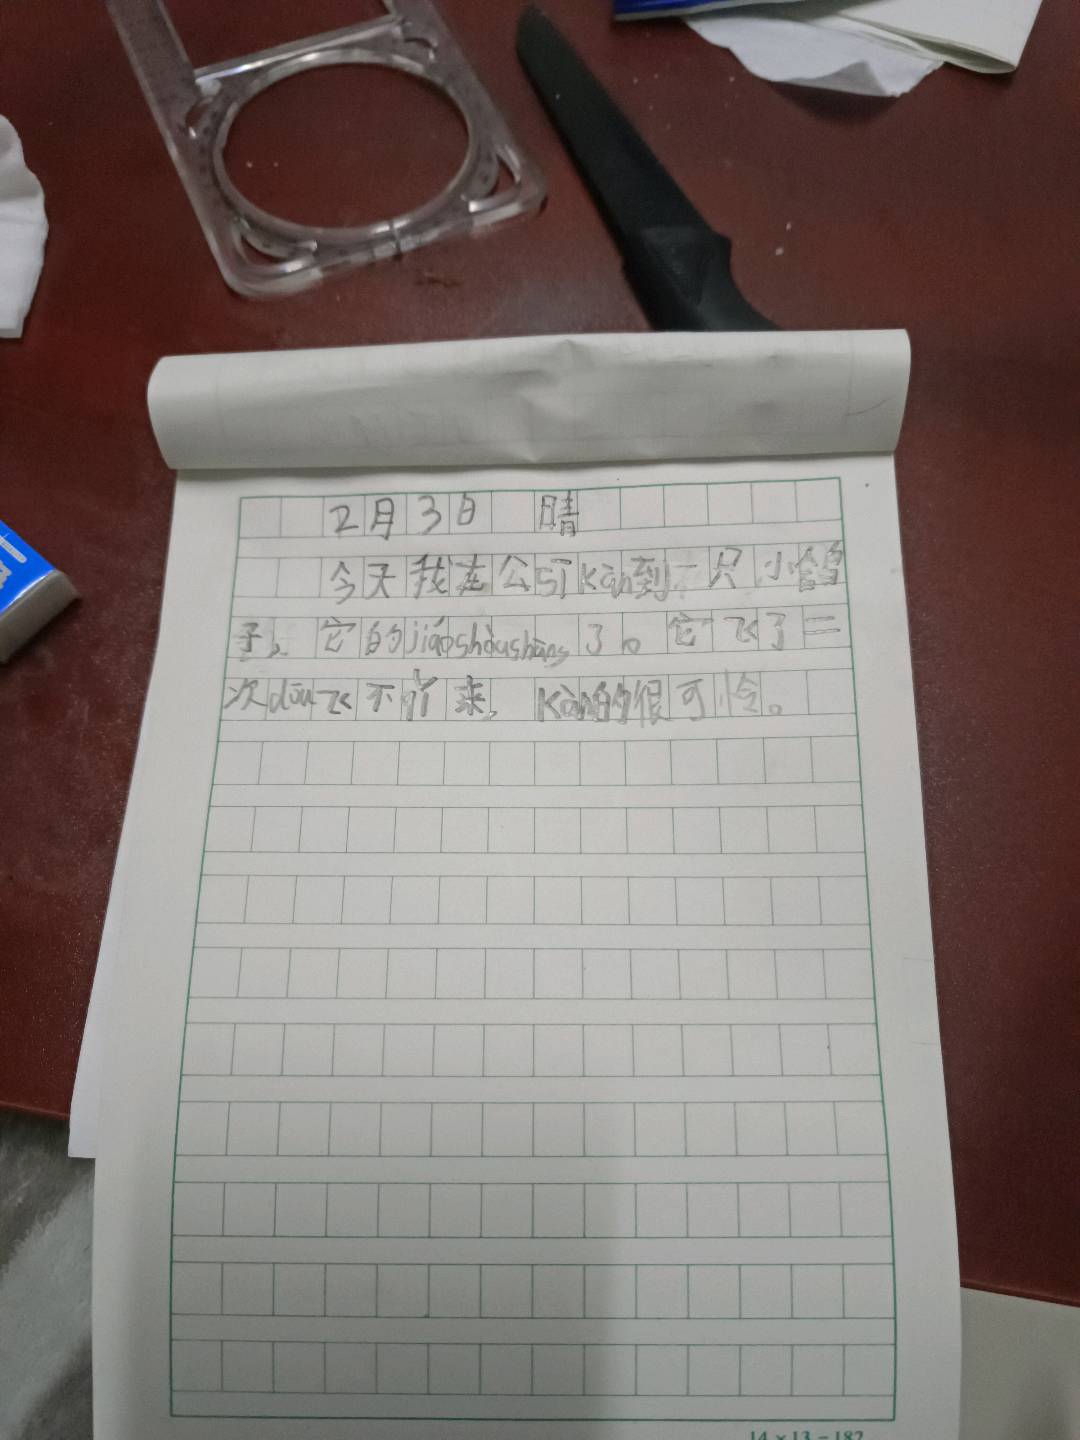 2月3日 晴
今天我在公司kàn到一只小鸽
子，它的jiǎoshòushāng了。它飞了二
次dōu飞不起来，kàn的很可怜。
14×13=182